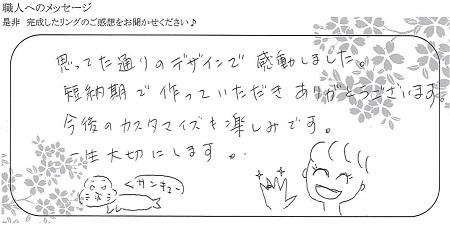 職人へのメッセージ
是非 完成したリングのご感想をお聞かせください♪
思ってた通りのデザインで 感動しました。
短納期で作っていただきありがとうございます。
今後のカスタマイズも楽しみです。
一生大切にします。
サンキュー